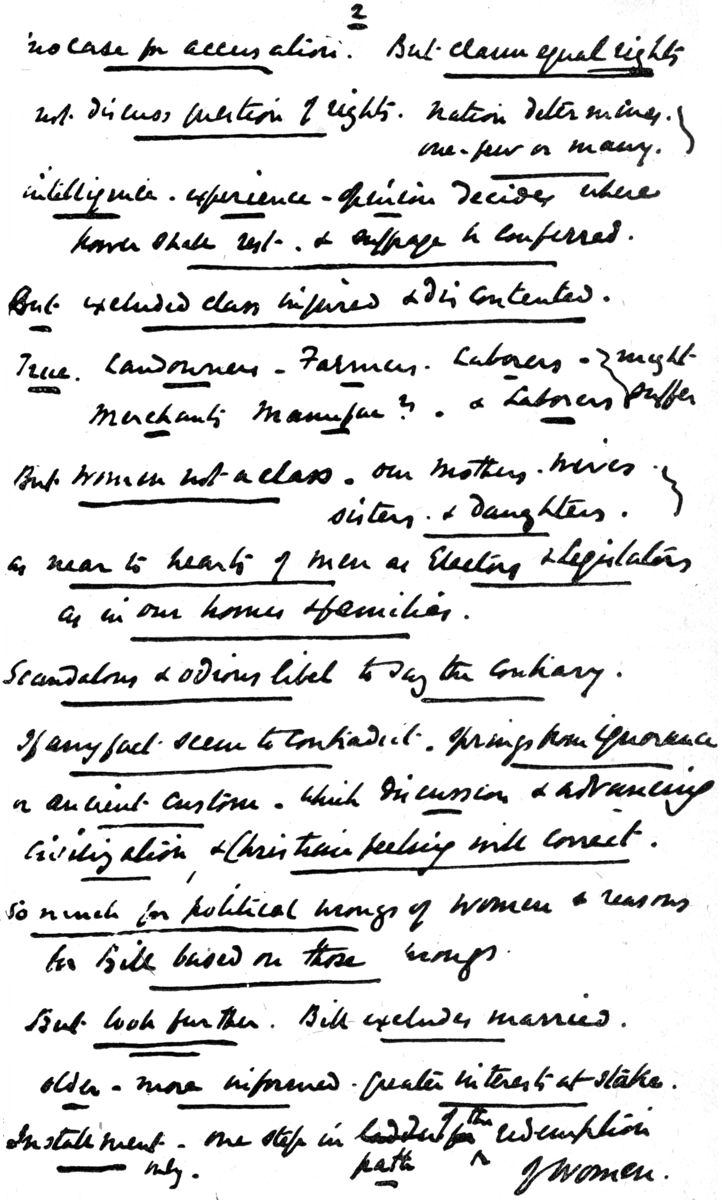 2
no case for accusation. But claim equal rights
not discuss question of rights. Nation determines.
one - few or many.
intelligence - experience - opinion decides where
power shall rest - & suffrage be conferred.
But excluded class injured & discontented.
True. Landowners - Farmers. Laborers - might
Merchants Manufac.rs . & Laborers suffer
But women not a class. our mothers. wives.
sisters. & daughters.
as near to hearts of men as Electors & Legislators
as in our homes & families.
Scandalous & odious libel to say the contrary.
If any fact seem to contradict. springs from ignorance
or ancient custom - which discussion & advancing
civilization, & Christian feeling will correct.
So much for political wrongs of women & reasons
for Bill based on those wrongs.
But look further. Bill excludes married.
older - more informed. greater interests at stake.
Instalment - one step in path of the redemption
only. of women.